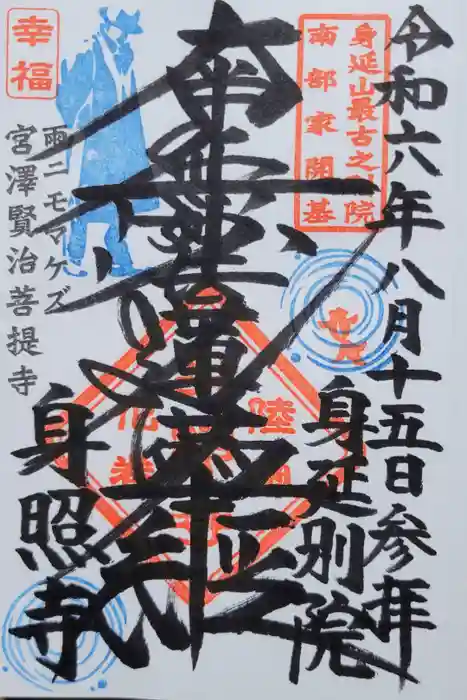 令和六年八月十五日参拝
身延山最古之別院
南部家開基
身延別院
南無妙法蓮華経
幸福
雨ニモマケズ
宮澤賢治菩提寺
身照寺